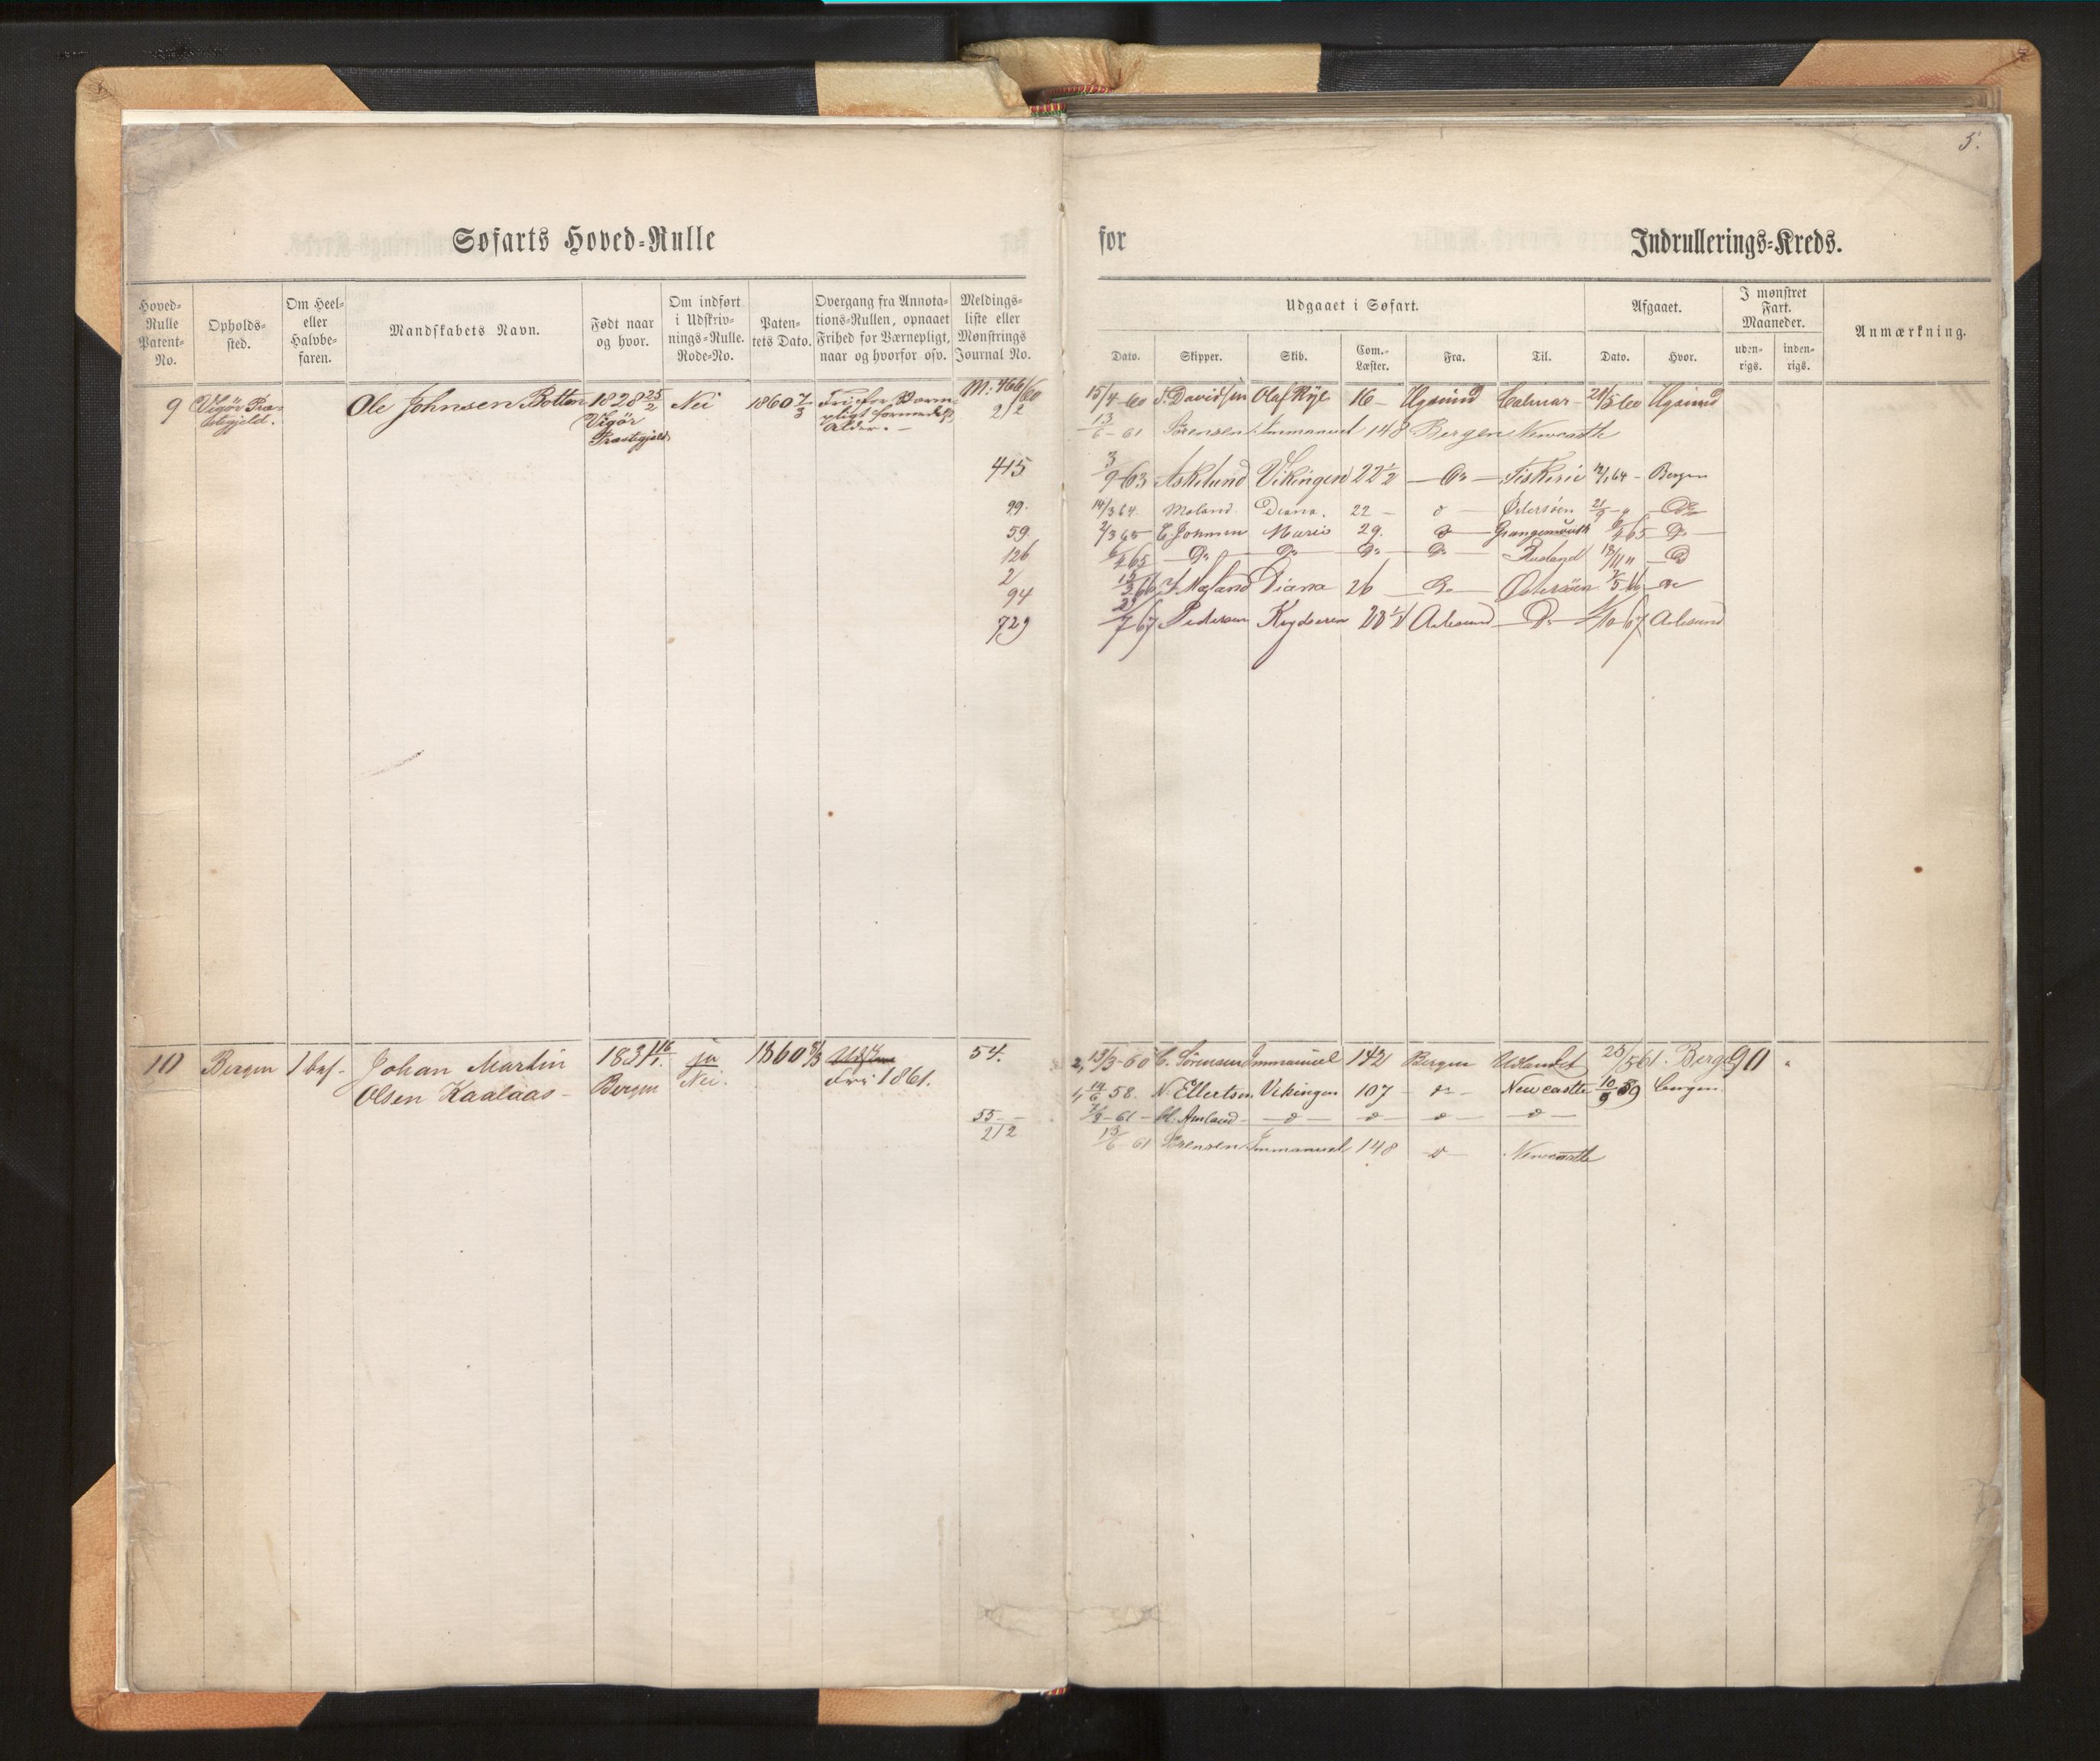 5.
Søfarts Hoved-Rulle
for
Indrullerings-Kreds.
Hoved-Rulle Patent-No.
Opholds-sted.
Om Heel- eller Halvbe-faren.
Mandskabets Navn.
Født naar og hvor.
Om indført i Udskriv-nings-Rulle. Rode-No.
Paten-tets Dato.
Overgang fra Annota-tions-Rullen, opnaaet Frihed for Værnepligt, naar og hvorfor osv.
Meldings-liste eller Mønstrings Journal No.
Udgaaet i Søfart.
Dato. Skipper. Skib. Com.-Læster. Fra. Til.
Afgaaet.
Dato. Hvor.
I mønstret Fart. Maaneder.
uden-rigs. inden-rigs.
Anmærkning.
9 Vigör Præ-stegjeld. Ole Johnsen Botten 1828 25/2 Vigör Præstegjeld Nei 1860 7/3 Fri for Værn-pligt formedelst Alder.- M: 466/60
15/4-60 Davidsen Olaf Rye 16 - 60
212 13/6-61 Sørensen Immanuel 148 Bergen Newcastle
415 3/9 63 Askelund Vikingen 22 1/2 - Do - Fiskeri 64 - Bergen
99. 14/3 64 Moland Diana. 22 - d - Østersøen 21/9 - " - Do
59. 2/3 65 E. Johnsen Marie 29. d Grangemouth 65 - Do -
126 65 - Do - Do - Do - Do - Rusland 18/11 " - Do
2/94 15/3 66 Moland Diana 26 - Do - Østersøen 66 - Do
729 67 Pedersen 23 1/2 Aalesund - Do - /10-67 Aalesund
10 Bergen 1 bef. Johan Martin Olsen Kaalaas - 1831 16/1. Bergen ja Nei. 1860 8/3 Fri 1861. 54.
2, 13/3-60 C. Sørensen Immanuel 142 Bergen Udlandet 25/5 61. Bergen 90 "
1, 14/6 58. N. Ellertsen Vikingen 107 - do - Newcastle 10/9 59 Bergen
55 7/3-61 - Amland - d - d - d - d -
212 13/6 61 Sørensen Immanuel 148 - d - Newcastle